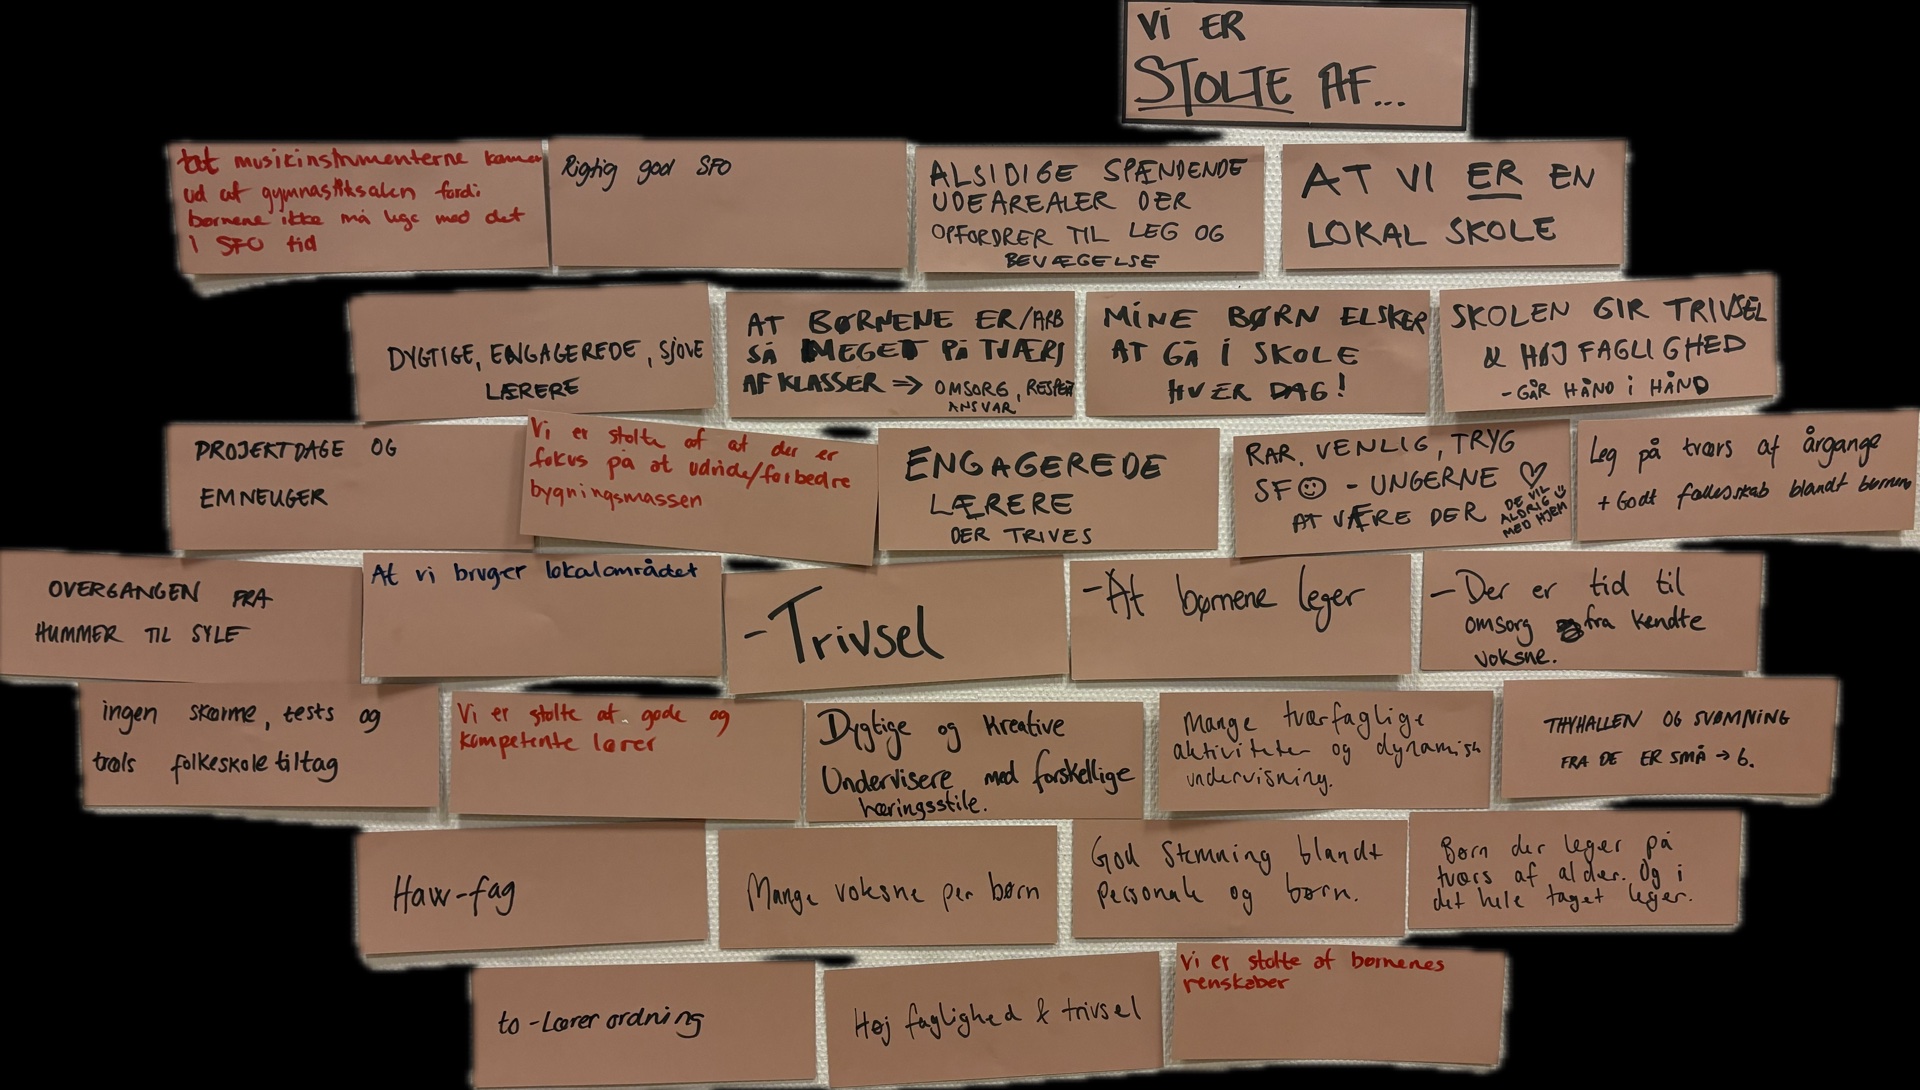 Vi ER
STOLTE AF...
at musikinstrumenterne kommer
ud af gymnastiksalen fordi
børnene ikke må lege med det
i SFO tid
Rigtig god SFO
ALSIDIGE SPÆNDENDE
UDEAREALER DER
OPFORDRER TIL LEG OG
BEVÆGELSE
AT VI ER EN
LOKAL SKOLE
DYGTIGE, ENGAGEREDE, SJOVE
LÆRERE
AT BØRNENE ER/ARB
SÅ MEGET PÅ TVÆRS
AF KLASSER => OMSORG, RESPEKT
ANSVAR
MINE BØRN ELSKER
AT GÅ I SKOLE
HVER DAG!
SKOLEN GIR TRIVSEL
& HØJ FAGLIGHED
- GÅR HÅND I HÅND
PROJEKTDAGE OG
EMNEUGER
Vi er stolte af at der er
fokus på at udvide/forbedre
bygningsmassen
ENGAGEREDE
LÆRERE
DER TRIVES
RAR, VENLIG, TRYG
SFO - UNGERNE ♡
AT VÆRE DER
DE VIL
ALDRIG
MED HJEM
Leg på tværs af årgange
+ Godt fællesskab blandt børnene
OVERGANGEN FRA
HUMMER TIL SYLE
At vi bruger lokalområdet
- Trivsel
- At børnene leger
- Der er tid til
omsorg fra kendte
voksne.
ingen skærme, tests og
træls folkeskoletiltag
Vi er stolte af gode og
kompetente lærer
Dygtige og kreative
Undervisere med forskellige
læringsstile.
Mange tværfaglige
aktiviteter og dynamisk
undervisning.
THYHALLEN OG SVØMNING
FRA DE ER SMÅ → 6.
Haw-fag
Mange voksne per børn
God stemning blandt
personale og børn.
Børn der leger på
tværs af alder. Og i
det hele taget leger.
to-Lærer ordning
Høj faglighed & trivsel
Vi er stolte af børnenes
renskaber